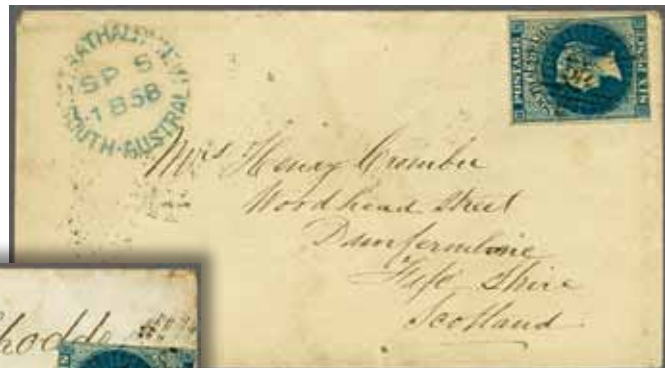 STRATHALBYN
SP 5
1858
SOUTH-AUSTRALIA
POSTAGE
SIX PENCE
Mrs Henry Crombie
Woodhead Street
Dumfermline
Fife Shire
Scotland